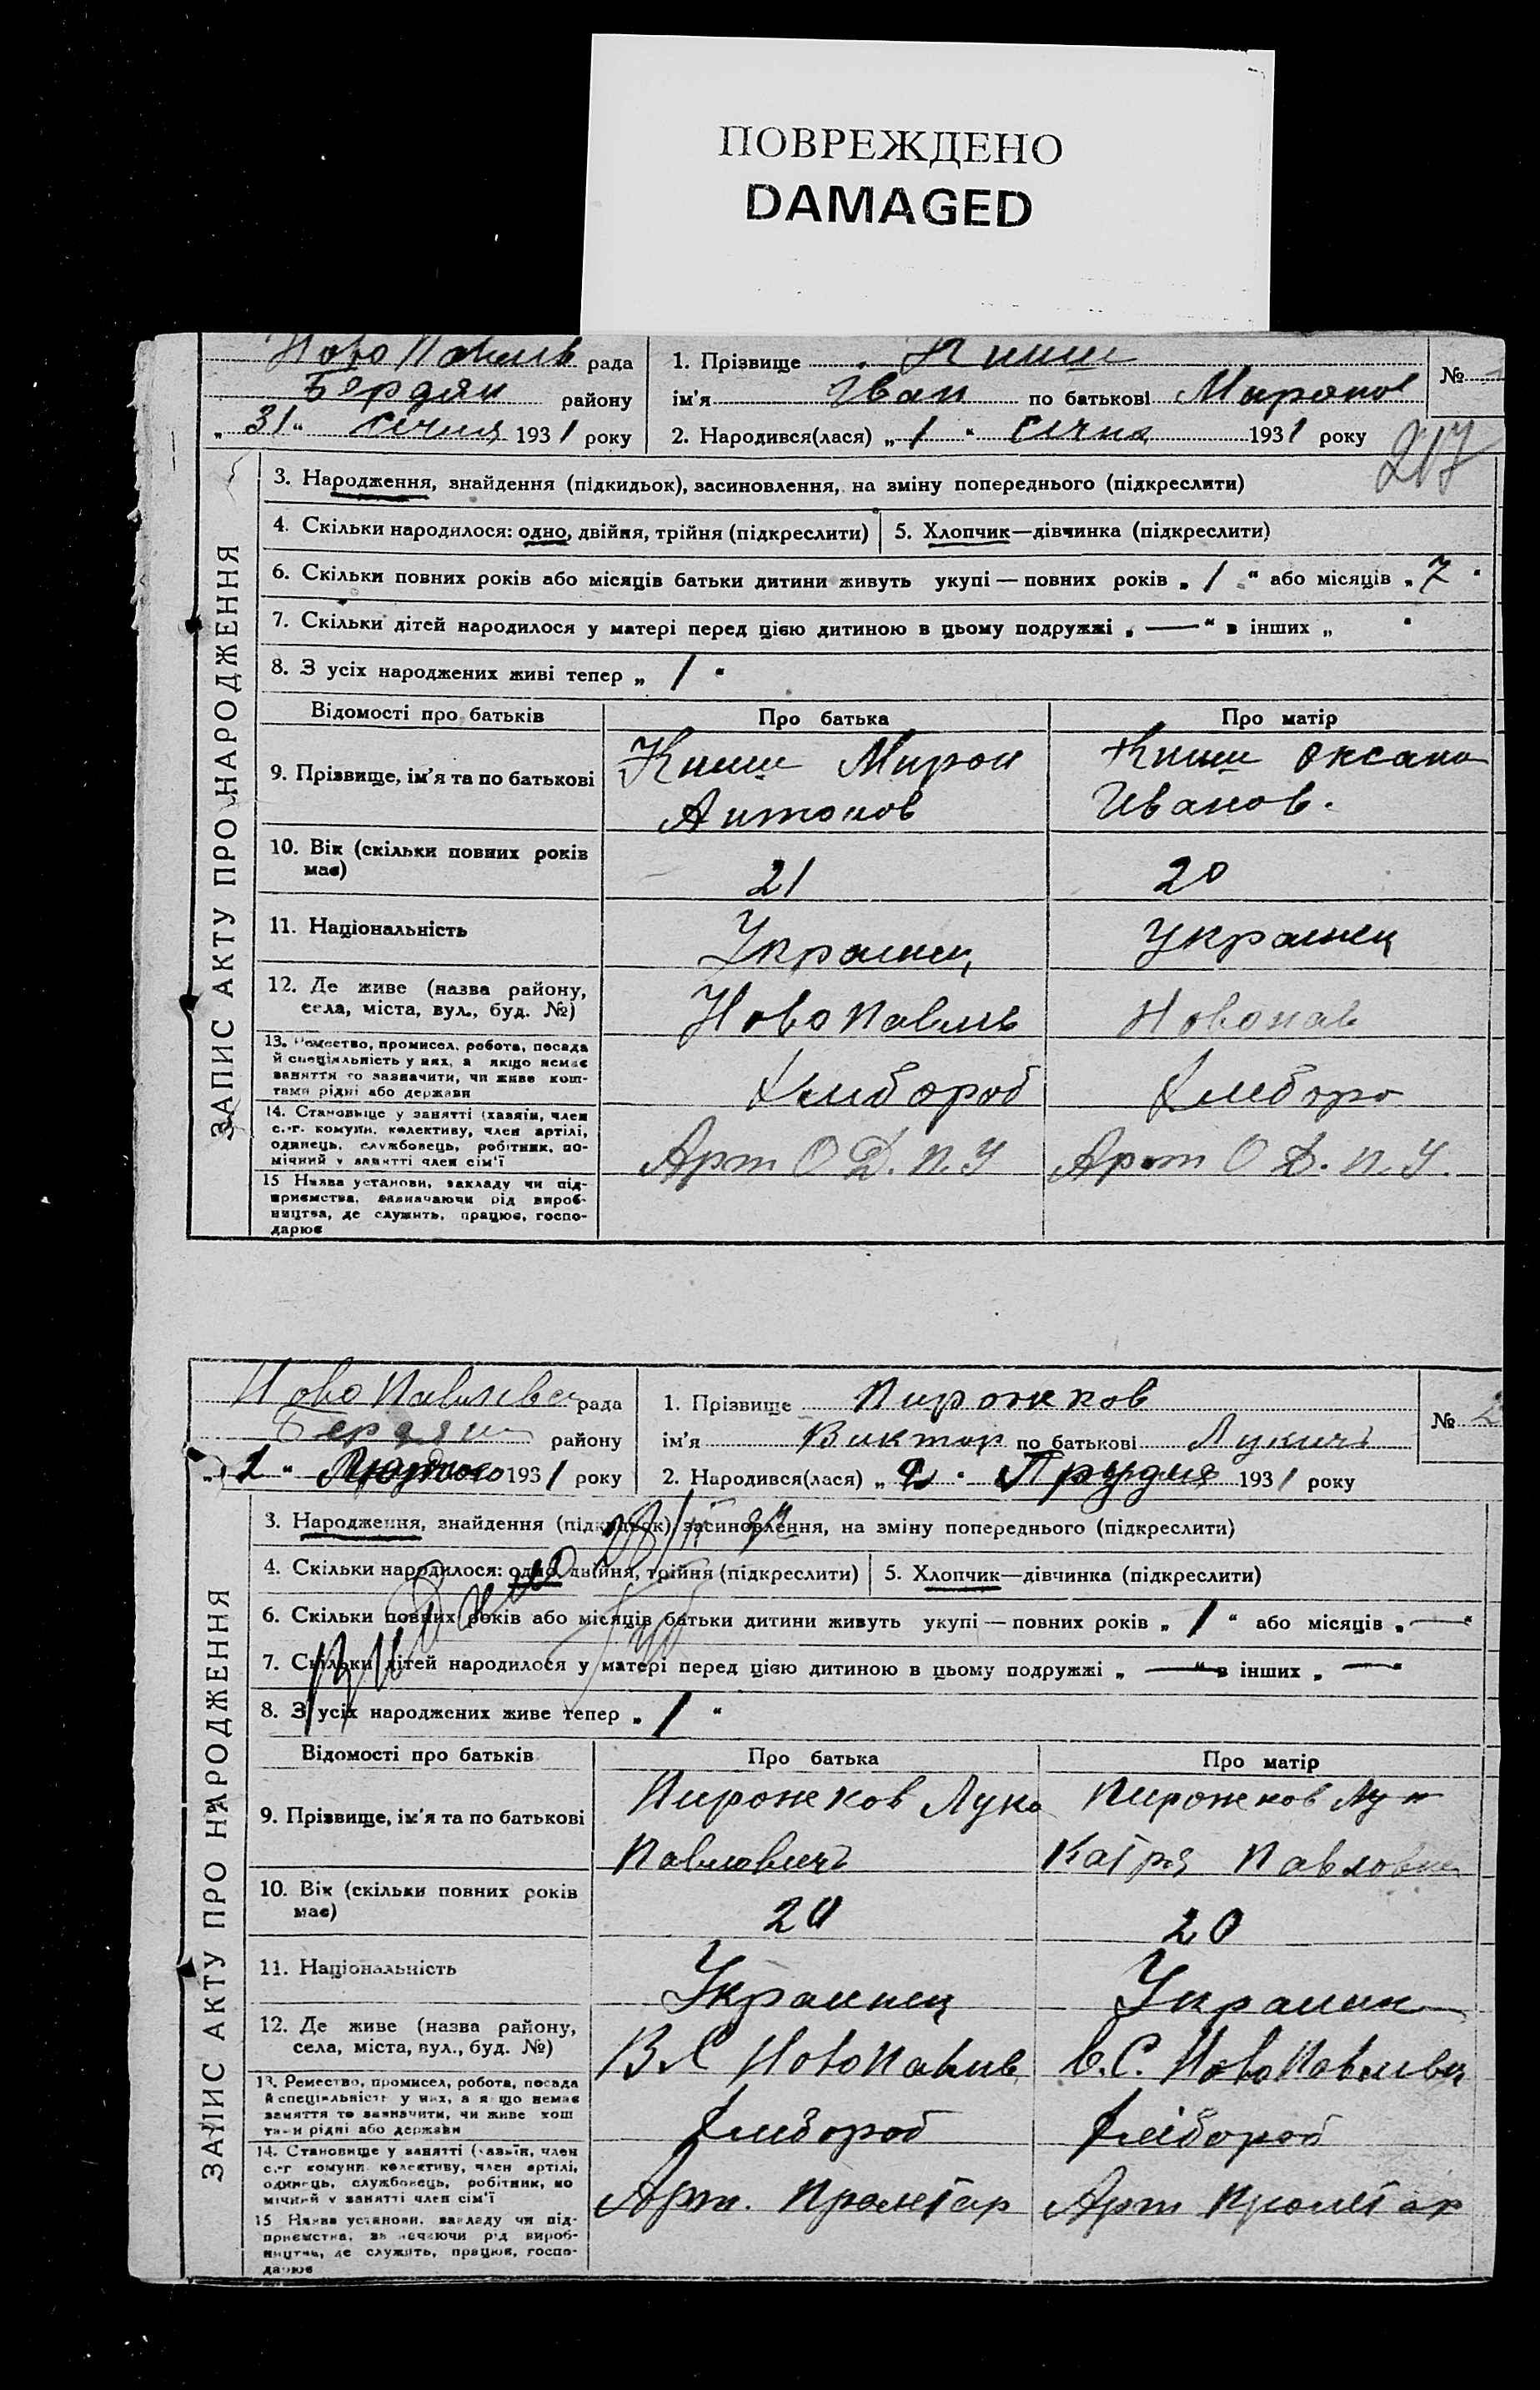 ПОВРЕЖДЕНО
DAMAGED
рада
Бердян району
„31“ Січня 1931 року
1. Прізвище
ім'я Іван по батькові Миронов
2. Народився(лася) „1“ Січня 1931 року
№
217
ЗАПИС АКТУ ПРО НАРОДЖЕННЯ
3. Народження, знайдення (підкидьок), засиновлення, на зміну попереднього (підкреслити)
4. Скільки народилося: одно, двійня, трійня (підкреслити)
5. Хлопчик—дівчинка (підкреслити)
6. Скільки повних років або місяців батьки дитини живуть укупі — повних років „1“ або місяців „7“
7. Скільки дітей народилося у матері перед цією дитиною в цьому подружжі „—“ в інших „ “
8. З усіх народжених живі тепер „1“
Відомості про батьків
Про батька
Про матір
9. Прізвище, ім'я та по батькові
Мирон
Антонов
Оксана
Иванов.
10. Вік (скільки повних років
має)
21
20
11. Національність
Украинец
Украинец
12. Де живе (назва району,
села, міста, вул., буд. №)
Ново Павлів
Новопав
13. Ремество, промисел, робота, посада
й спеціяльність у них, а якщо немає
заняття то зазначити, чи живе кош-
тами рідні або держави
Хлибороб
Хлиборо
14. Становище у занятті (хазяїн, член
с.-г. комуни, колективу, член артілі,
одинець, службовець, робітник, по-
мічний у занятті член сім'ї
Арт О Д. П. У
Арт О Д. П. У.
15 Назва установи, закладу чи під-
приємства, зазначаючи рід вироб-
ництва, де служить, працює, госпо-
дарює
рада
району
„2“ Лютого 1931 року
1. Прізвище Пирожков
ім'я Виктор по батькові Лукичъ
2. Народився(лася) „2“ 1931 року
№ 2
ЗАПИС АКТУ ПРО НАРОДЖЕННЯ
3. Народження, знайдення (підкидьок), засиновлення, на зміну попереднього (підкреслити)
4. Скільки народилося: одно, двійня, трійня (підкреслити)
5. Хлопчик—дівчинка (підкреслити)
6. Скільки повних років або місяців батьки дитини живуть укупі — повних років „1“ або місяців „—“
7. Скільки дітей народилося у матері перед цією дитиною в цьому подружжі „—“ в інших „—“
8. З усіх народжених живе тепер „1“
Відомості про батьків
Про батька
Про матір
9. Прізвище, ім'я та по батькові
Пирожков Лука
Павловичъ
Пирожков
Катря Павловна
10. Вік (скільки повних років
має)
20
20
11. Національність
Украинец
Украинк
12. Де живе (назва району,
села, міста, вул., буд. №)
Ново Павлів
В.С. Ново Павливц
13. Ремество, промисел, робота, посада
й спеціяльність у них, а якщо немає
заняття то зазначити, чи живе кош
тами рідні або держави
Хлибороб
Хлібороб
14. Становище у занятті (хазяїн, член
с.-г комуни колективу, член артілі,
одинець, службовець, робітник, по
мічний у занятті член сім'ї
Арт. Пролетар
Арт Пролетар
15 Назва установи, закладу чи під-
приємства, зазначаючи рід вироб-
ництва, де служить, працює, госпо-
дарює